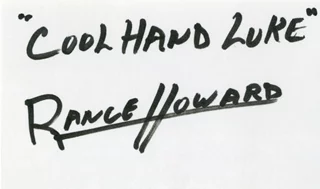 "COOL HAND LUKE"
RANCE HOWARD